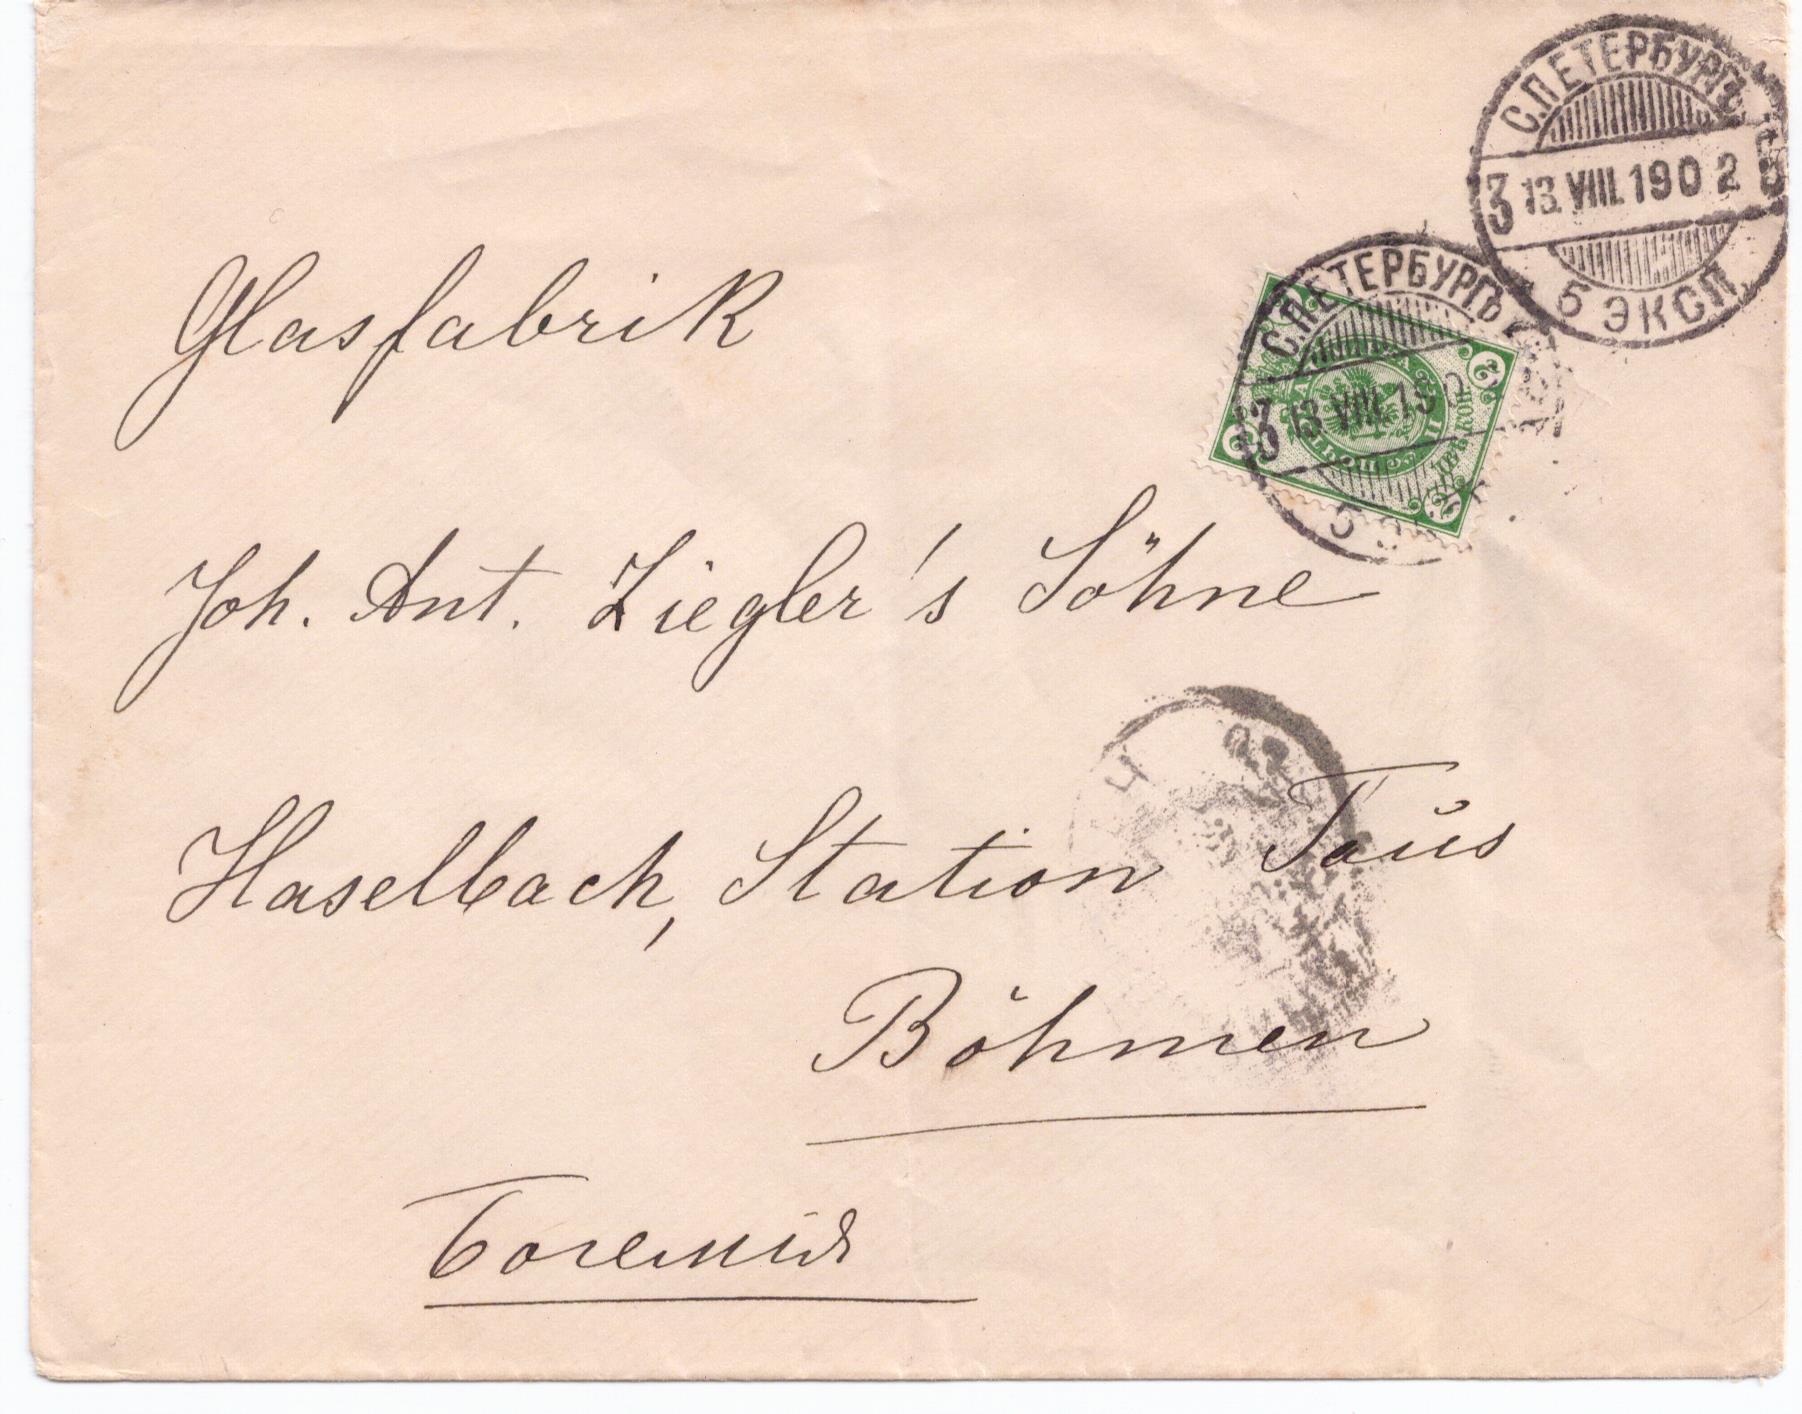 С.ПЕТЕРБУРГЪ
3 13.VIII.1902
5 ЭКСП.
С.ПЕТЕРБУРГЪ
3 13.VIII.190
5
2
2
2
2
ДВѢ КОП.
Glasfabrik
Joh. Ant. Ziegler's Söhne
Haselbach, Station Taus
Böhmen
Богемія